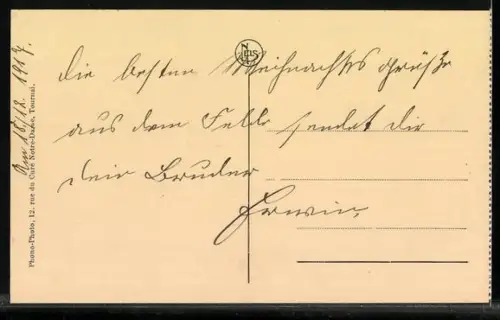 Die besten Weihnachts grüße
aus dem Felde sendet dir
dein Bruder
Erwin.
Am 18/12. 1917.
Phono-Photo, 12, rue du Curé Notre-Dame, Tournai.